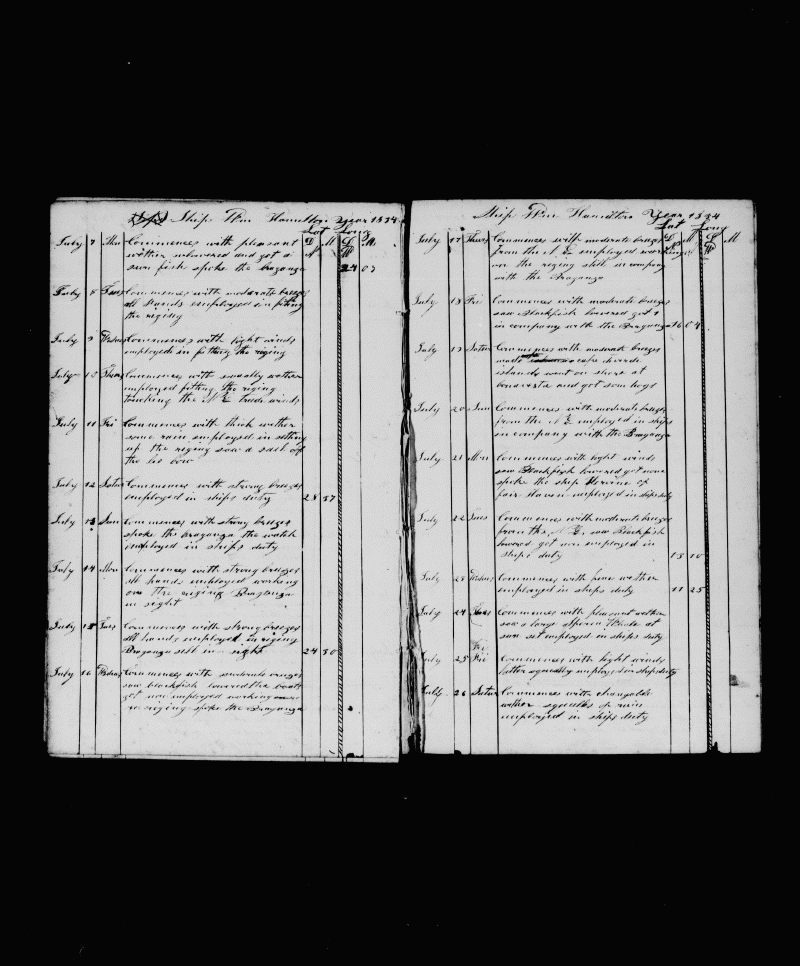 Ship Wm Hamilton Year 1834
Lat Long
D M D M
N W
July 7 Mn Commences with pleasant
wether in lowered and got a
sun fish spoke the braganza 24 03
July 8 Tues Commences with moderate breezes
all hands employed in fiting
the riging
July 9 Wednes Commences with light winds
employed in fitting the riging
July 10 Thurs Commences with squally wether
employed fitting the riging
the NE trade winds
July 11 Fri Commences with thick wether
some rain employed in setting
up the riging saw a sail off
the lee bow
July 12 Satur Commences with strong breezes
employed in ships duty 28 57
July 13 Sun Commences with strong breezes
spoke the Braganza the watch
employed in ships duty
July 14 Mon Commences with strong breezes
all hands employed working
on the riging Braganza
in sight
July 15 Tues Commences with strong breezes
all hands employed in riging
Braganza still in sight 24 50
July 16 Wednes Commences with moderate breezes
saw blackfish lowered the boats
got non employed working
in riging spoke the Braganza
Ship Wm Hamilton Year 1834
Lat Long
D M D M
N W
July 17 Thurs Commences with moderate breezes
from the NE employed working
on the riging still in company
with the Braganza
July 18 Fri Commences with moderate breezes
saw Blackfish lowered got 1
in company with the Braganza 16 04
July 19 Satur Commences with moderate breezes
made cape
islands went on shore at
bonavista and got som hogs
July 20 Sun Commences with moderate breezes
from the NE employed in ships
in company with the Braganza
July 21 Mon Commences with light winds
saw Blackfish lowered got none
spoke the ship Heroine of
fair Haven employed in ships duty
July 22 Tues Commences with moderate breezes
from the NE, saw Blackfish
lowered got non employed in
ships duty 13 10
July 23 Wednes Commences with fine wether
employed in ships duty 11 25
July 24 Thurs Commences with pleasant wether
saw a large Sperm Whale at
sun set employed in ships duty
Fri
July 25 Fri Commences with light winds
latter squally employed in ships duty
July 26 Satur Commences with changable
wether squalls of rain
employed in ships duty